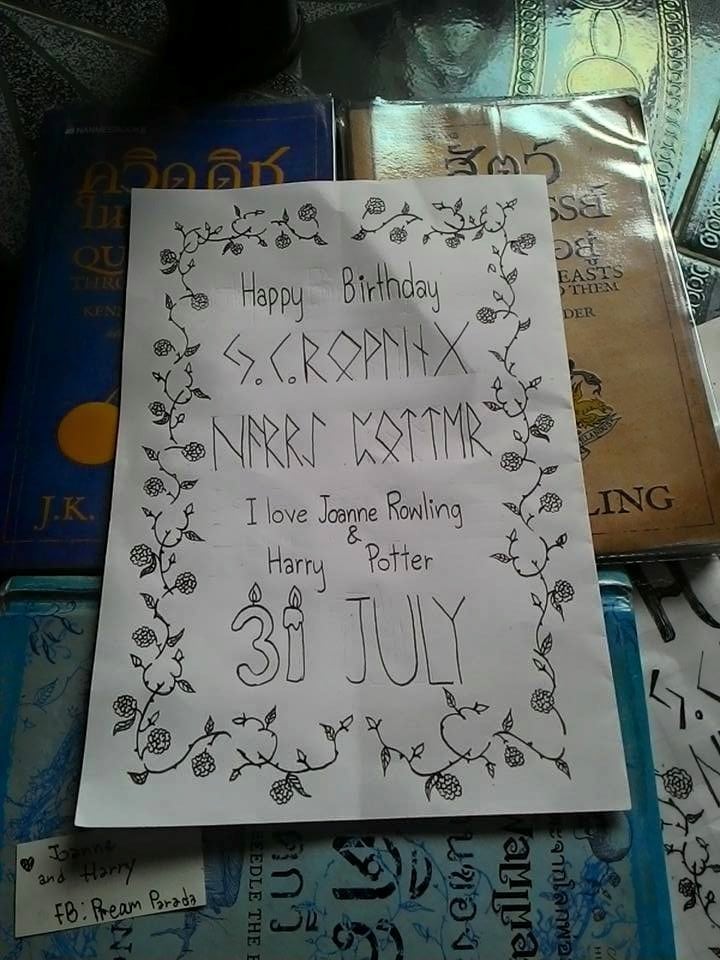 NANMEEBOOKS
ควิดดิช
สัตว์
รรย์
QU
THRO
KENN
อยู่
EASTS
THEM
DER
J.K.
LING
Happy Birthday
ᛃ.ᚲ.ᚱᛟᚹᛚᛁᚾᚷ
ᚺᚨᚱᚱᛇ ᛈᛟᛏᛏᛖᚱ
I love Joanne Rowling
&
Harry Potter
31 JULY
Joanne
and Harry
FB: Pream Parada